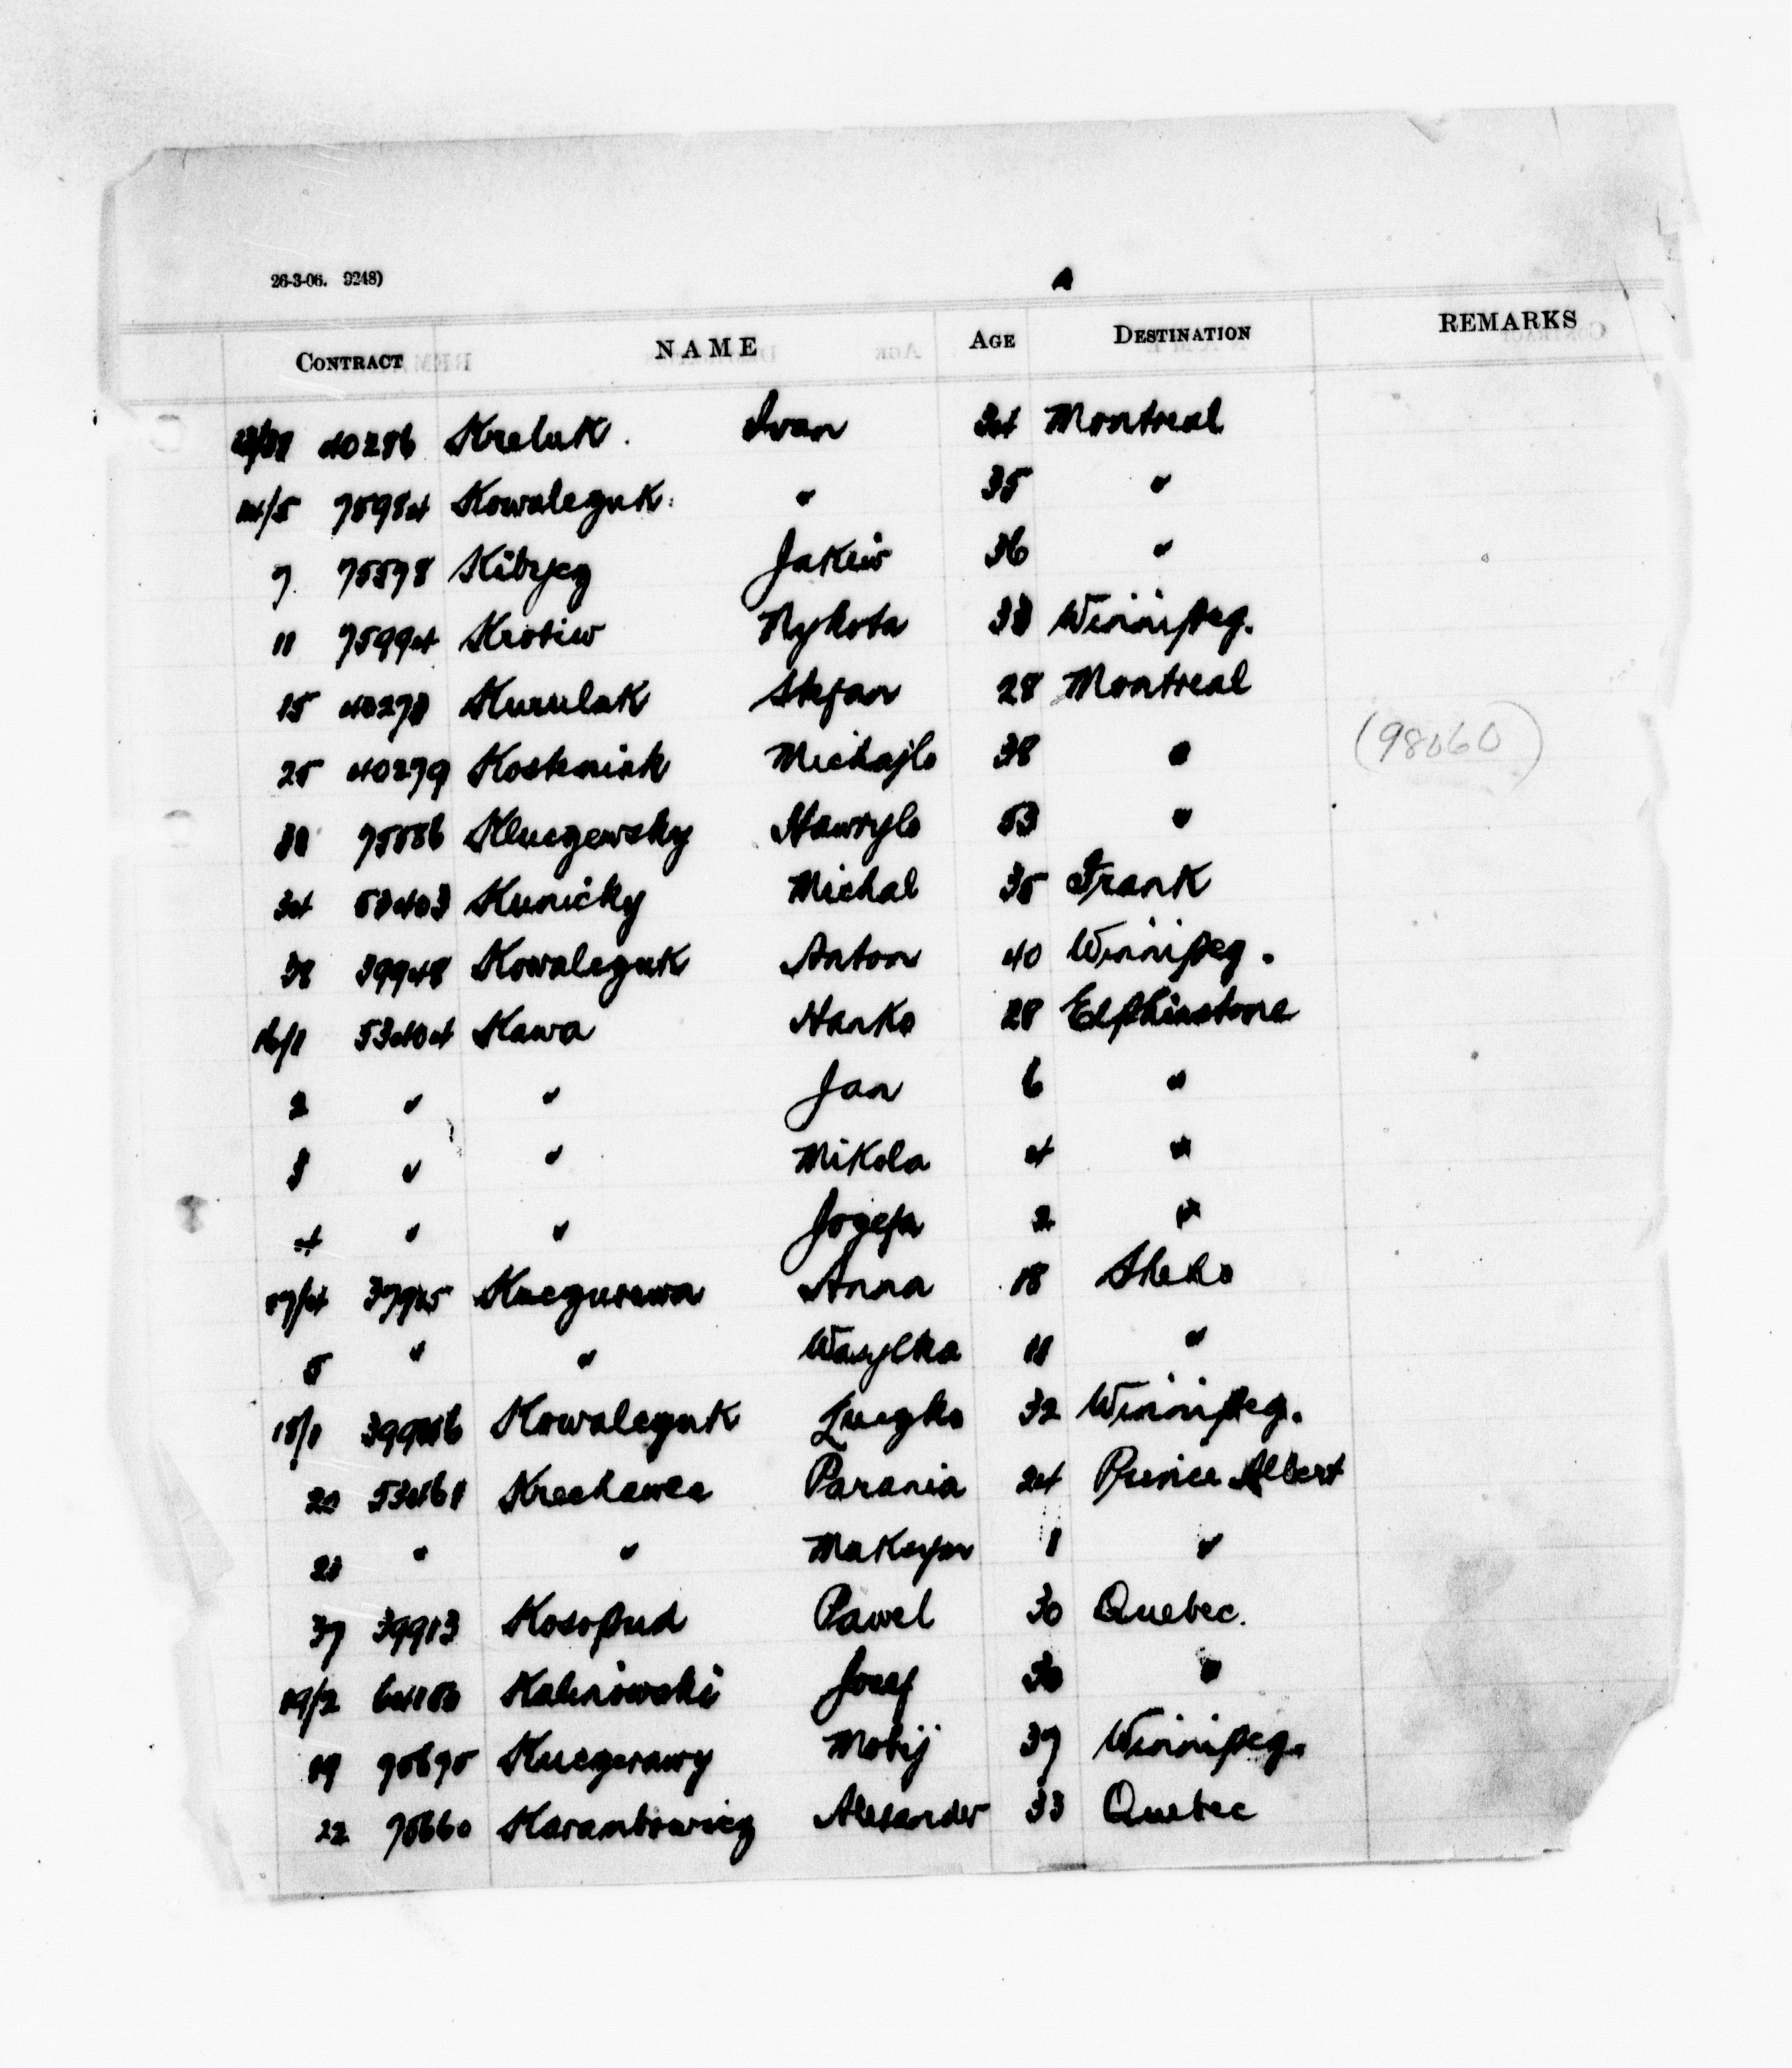 26-3-06. 9248)
CONTRACT NAME AGE DESTINATION REMARKS
40286 Kreluk. Ivan 34 Montreal
14/5 75984 Kowalczuk " 35 "
7. 75578 Kibycz Jakiw 36 "
11 75994 Krotiw Nykola 33 Winnipeg.
15 40278 Kurulak Stefan 28 Montreal
25 40279 Kosteniak Michajlo 38 " (98060)
Kluczewsky Hawrylo 53 "
34 53403 Kunicky Michal 35 Frank
38 39948 Kowalczuk Anton 40 Winnipeg.
16/1 53404 Kawa Hanka 28 Elphinstone
2 " " Jan 6 "
3 " " Mikola 4 "
4 " " Jozefa 2 "
17/4 Kuczurawa Anna 18 Sheho
5 " " Wasylka 11 "
18/1 Kowalczuk Luczka 32 Winnipeg.
20 53461 Parania 24 Prince Albert
21 " " 1 "
37 39913 Kosopud Pawel 30 Quebec.
19/2 64180 Kalinowski Josef 30 "
19 75675 Kuczerawy Motij 37 Winnipeg.
22 75660 Karambowicz Alexander 33 Quebec